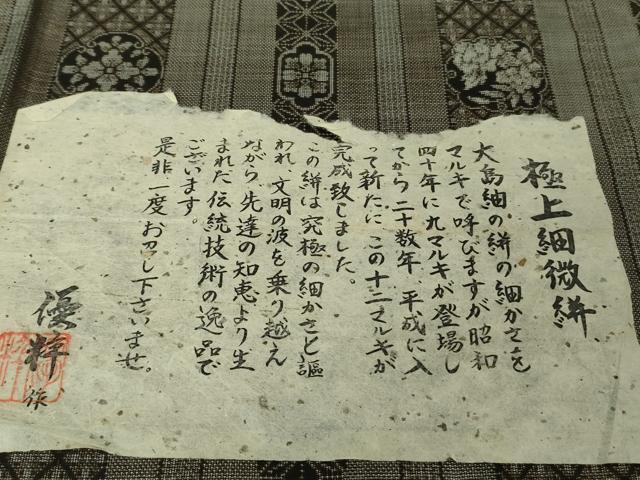 極上細微絣
大島紬の絣の細かさを
マルキで呼びますが昭和
四十年に九マルキが登場し
てから二十数年、平成に入
って新たにこの十二マルキが
完成致しました。
この絣は究極の細かさと謳
われ、文明の波を乗り越え
ながら、先達の知恵より生
まれた伝統技術の逸品で
ございます。
是非一度お召し下さいませ。
優粋作